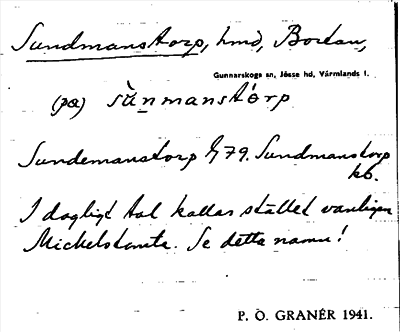 Sundmanstorp, hmd, Bortan,
Gunnarskoga sn, Jösse hd, Värmlands l.
(pɑ) sùn̲manstórp
Sundemanstorp 1779. Sundmanstorp
kb.
I dagligt tal kallas stället vanligen
Mickelstomta. Se detta namn!
P. O. GRANÉR 1941.